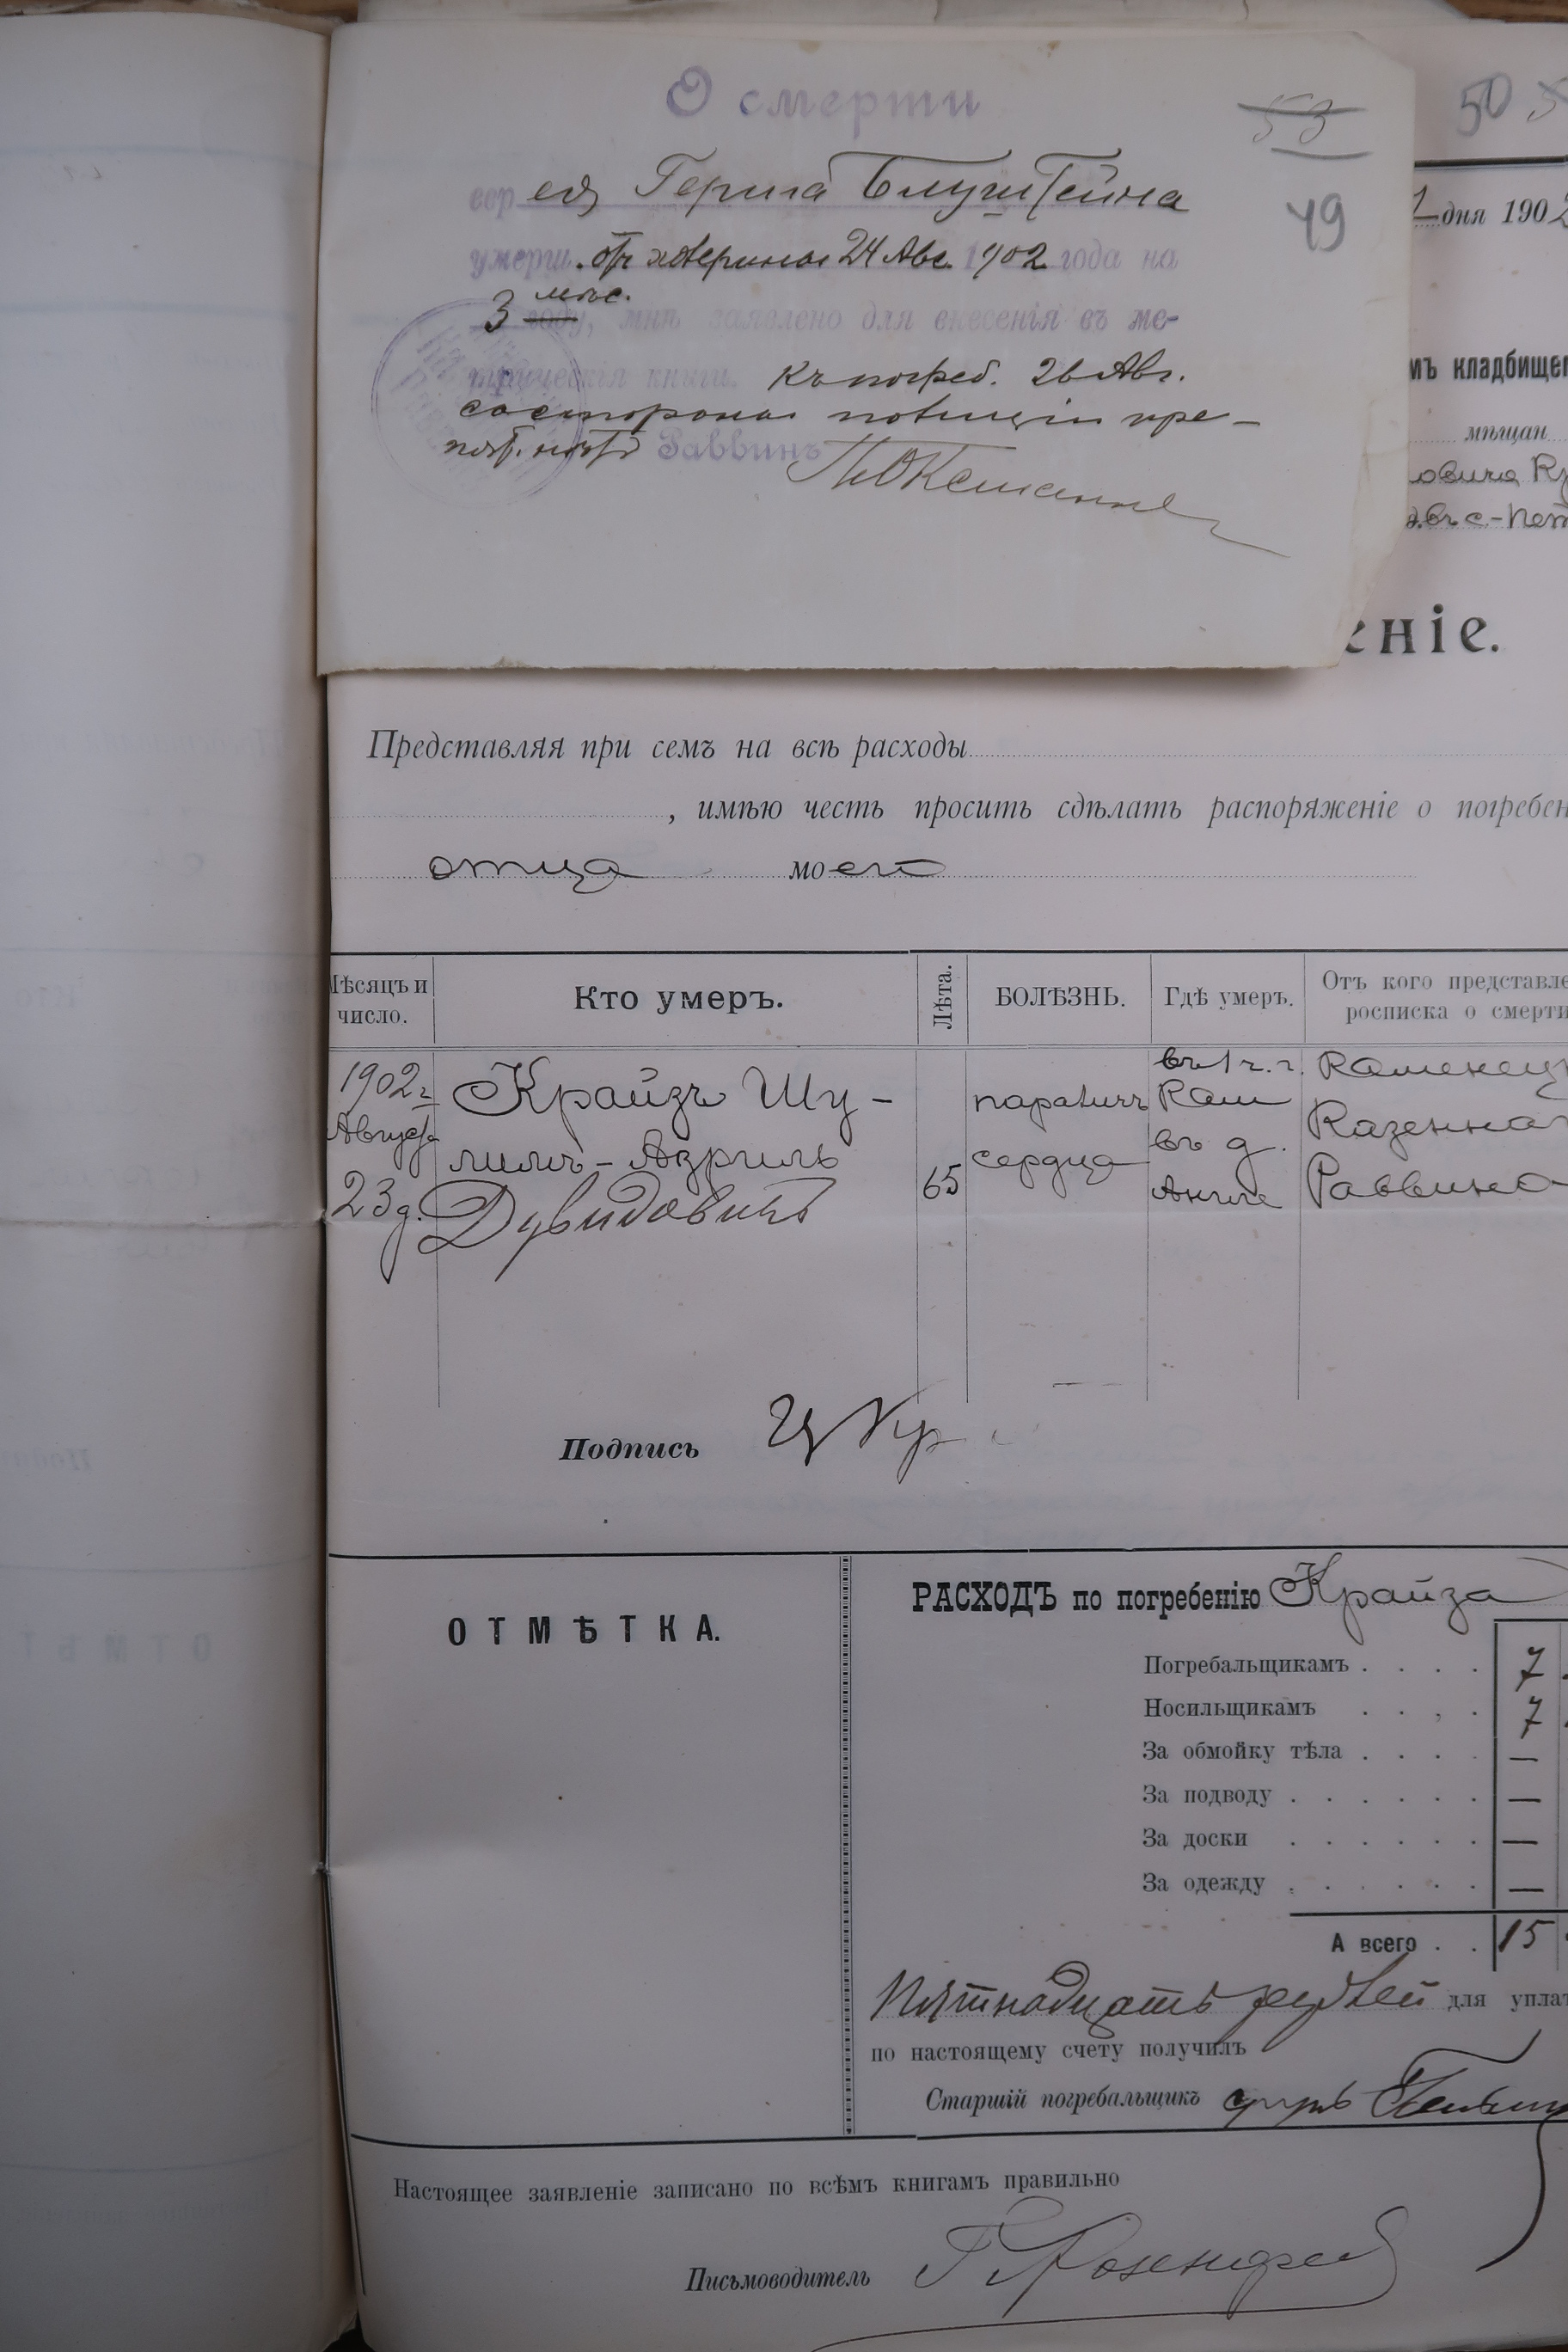 О смерти
53
49
50
евр ея Герша Блуштейна
умерш. от холерины 24 Авг. 1902 года на
3 мѣс.
году, мнѣ заявлено для внесенія въ ме-
трическія книги. Къ погреб. 26 Авг.
со стороны полиціи пре-
Раввинъ
дня 1902
мъ кладбищем
мѣщан
овича
въ с-Пет
еніе.
Представляя при семъ на всѣ расходы
, имѣю честь просить сдѣлать распоряженіе о погребен
отца моего
Мѣсяцъ и число.
Кто умеръ.
Лѣта.
БОЛѢЗНЬ.
Гдѣ умеръ.
Отъ кого представле
росписка о смерти
1902 г
Август
23 д.
Крайзъ Шу-
лимъ-Азриль
Дувидовичъ
65
параличъ
сердца
въ 1 ч. г.
Кам
въ д.
Каменец
Казенна
Раввина
Подпись
ОТМѢТКА.
РАСХОДЪ по погребенію Крайза
Погребальщикамъ . . . . 7
Носильщикамъ . . . . 7
За обмойку тѣла . . . . —
За подводу . . . . . . —
За доски . . . . . . —
За одежду . . . . . . —
А всего . . 15
Пятнадцать рублей для уплат
по настоящему счету получилъ
Старшій погребальщикъ
Настоящее заявленіе записано по всѣмъ книгамъ правильно
Письмоводитель